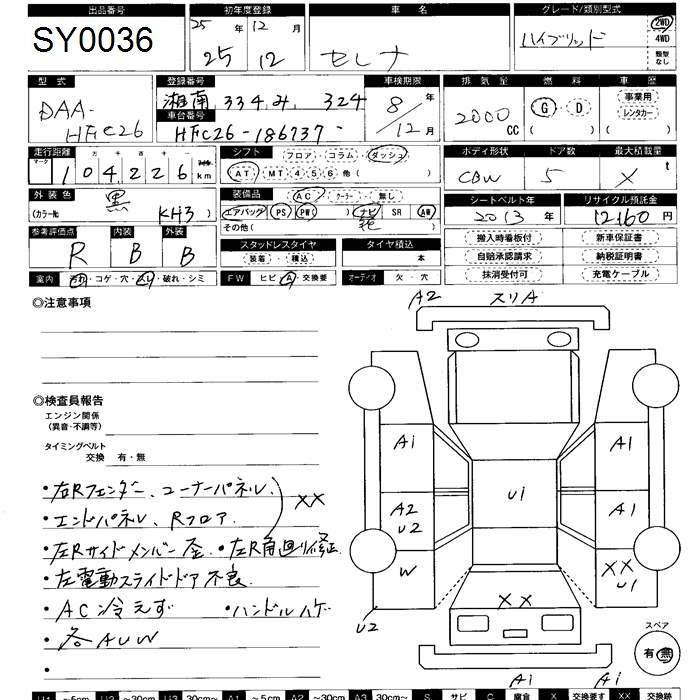 出品番号 初年度登録 車名 グレード/類別型式
SY0036 25年 12月 セレナ ハイブリッド 2WD 4WD 類型なし
25 12
型式 登録番号 車検期限 排気量 燃料 車歴
DAA-HFC26 湘南 334 み 324 8年 12月 2000cc G・D ( ) 事業用 レンタカー ( )
車台番号
HFC26-186737-
走行距離 シフト フロア・コラム・ダッシュ ボディ形状 ドア数 最大積載量
マーク 十 万 千 百 十
104226km AT・MT 4 5 6 他( ) CBW 5 X t
外装色 装備品 AC・クーラー・無し シートベルト年 リサイクル預託金
黒 (カラーNo KH3 ) エアバッグ・PS・PW( )ナビ・SR・AW 2013年 12160円
その他( )
参考評価点 内装 外装 搬入時看板付 新車保証書
R B B スタッドレスタイヤ タイヤ積込 自賠承認請求 納税証明書
装着・積込 本 抹消受付可 充電ケーブル
室内 汚れ・コゲ・穴・スレ・破れ・シミ FW ヒビ・A・交換要 オーディオ 欠・穴
◎注意事項
A2 スリA
◎検査員報告
エンジン関係
(異音・不調等)
タイミングベルト
交換 有・無
・右Rフェンダー、コーナーパネル、
・エンドパネル、Rフロア. XX
・左Rサイドメンバー歪・左R角廻り修正
・左電動スライドドア不良
・AC冷えず ・ハンドルハゲ
・各AUW
・
A1 A1
U1
A2 A1
U2
W XX
U1
XX
U2
スペア
有・無
A1 A1
U1 ～5cm U2 ～30cm U3 30cm～ A1 ～5cm A2 ～30cm A3 30cm～ S サビ C 腐食 X 交換要す XX 交換跡